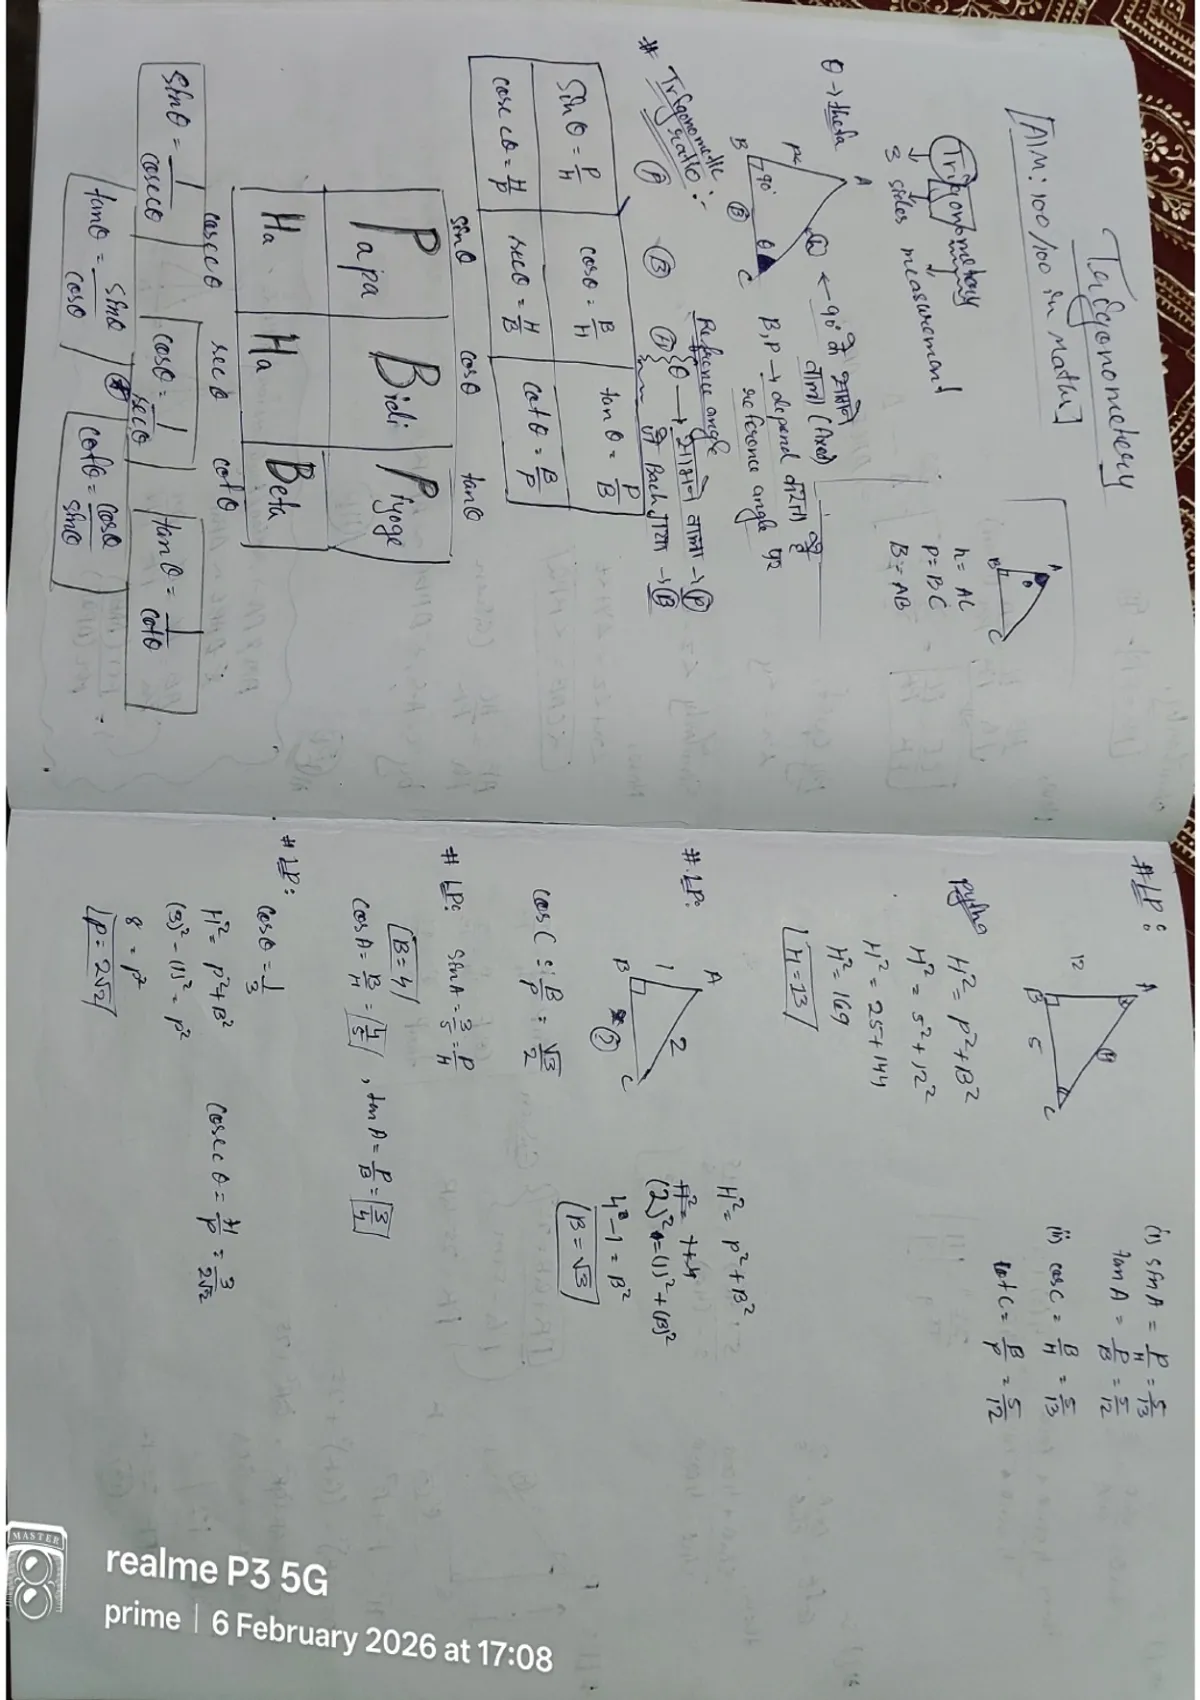 Trigonometry
[AIM: 100/100 in Maths]
Trigonometry
3 sides measurement
h = AC
P = BC
B = AB
A
B
C
θ
θ → theta
A
B
C
90°
θ
Ⓑ
← 90° के सामने वाला (fixed)
B, P → depend करता है
reference angle पर
Reference angle
θ → सामने वाला → Ⓟ
जो Bach गया → Ⓑ
# Trigonometric ratio :-
Ⓟ Ⓑ Ⓗ
sinθ = P/H cosθ = B/H tanθ = P/B
cosecθ = H/P secθ = H/B cotθ = B/P
sinθ cosθ tanθ
Papa Bidi Piyoge
Ha Ha Beta
cosecθ secθ cotθ
sinθ = 1/cosecθ cosθ = 1/secθ tanθ = 1/cotθ
tanθ = sinθ/cosθ cotθ = cosθ/sinθ
# LP:
A
12
B
5
C
Ⓗ
(i) sinA = P/H = 5/13
tanA = P/B = 5/12
(ii) cosC = B/H = 5/13
cotC = B/P = 5/12
Pytho H² = P² + B²
H² = 5² + 12²
H² = 25 + 144
H² = 169
H = 13
# LP:
A
1
2
B
C
H² = P² + B²
(2)² = (1)² + (B)²
4 - 1 = B²
B = √3
cosC = B/P = √3/2
# LP: sinA = 3/5 = P/H
B = 4
cosA = B/H = 4/5, tanA = P/B = 3/4
# LP:
cosθ = 1/3
H² = P² + B²
(3)² - (1)² = P²
8 = P²
P = 2√2
cosecθ = H/P = 3/2√2
MASTER
realme P3 5G
prime | 6 February 2026 at 17:08